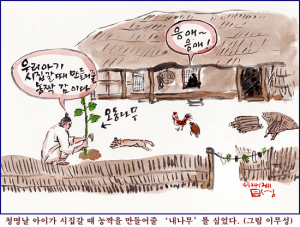 응애~
응애!
우리아기
시집갈 때 만들어줄
농짝 감이다
오동나무
청명날 아이가 시집갈 때 농짝을 만들어줄 '내나무' 를 심었다. (그림 이무성)